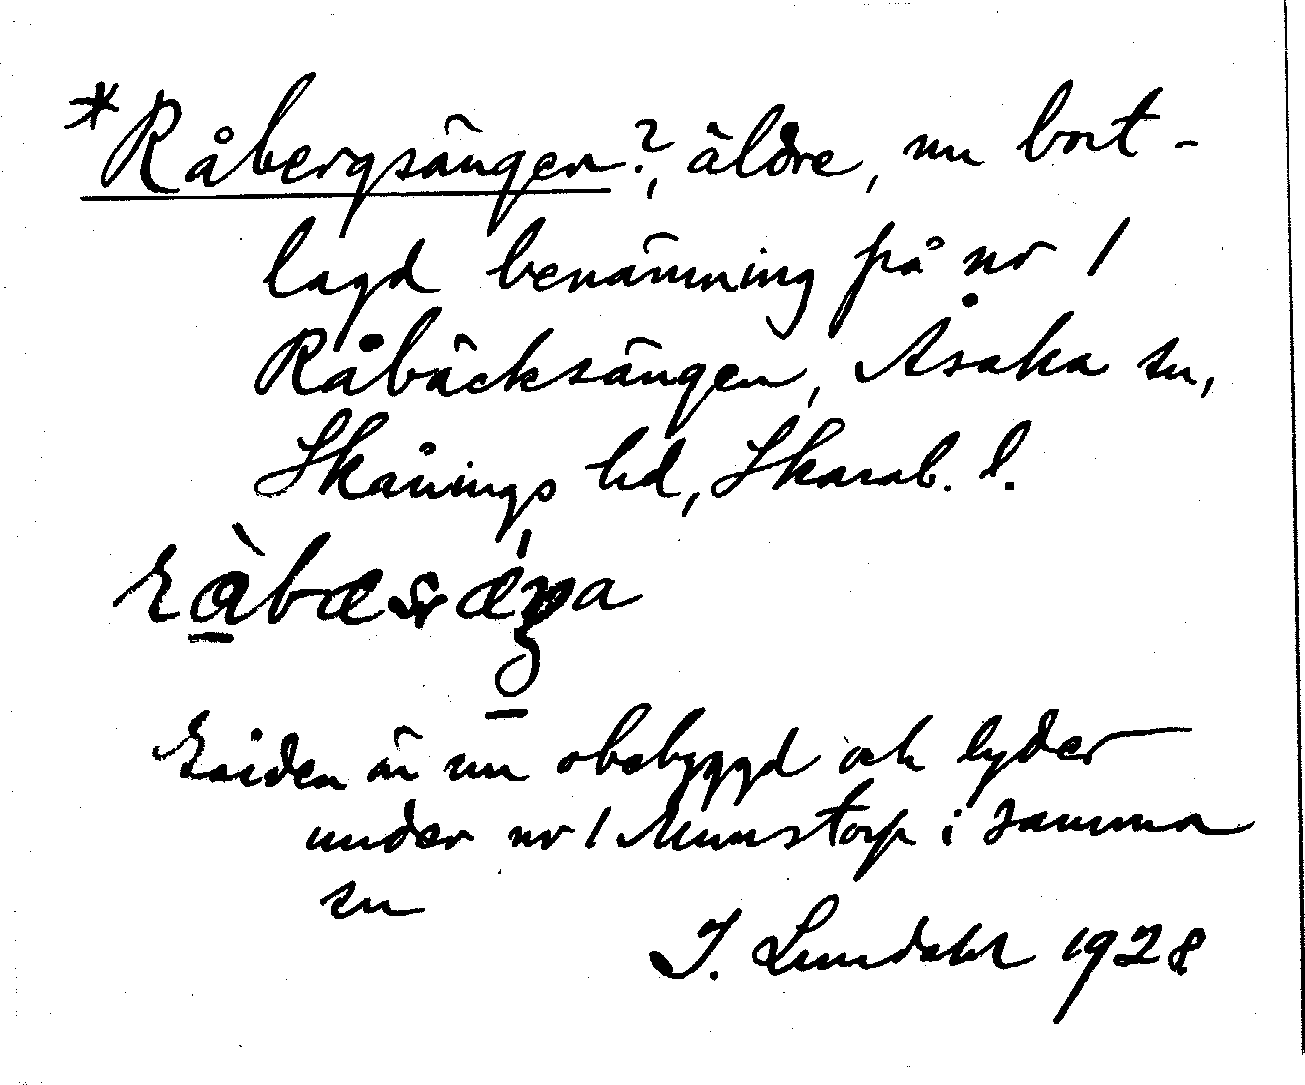 *Råbergsängen?, äldre, nu bort-
lagd benämning på nr 1
Råbäcksängen, Åsaka sn,
Skånings hd, Skarab. l.
ràbæsæŋa
är nu obebyggd och lyder
under nr 1 Munstorp i samma
sn
I. Lundahl 1928